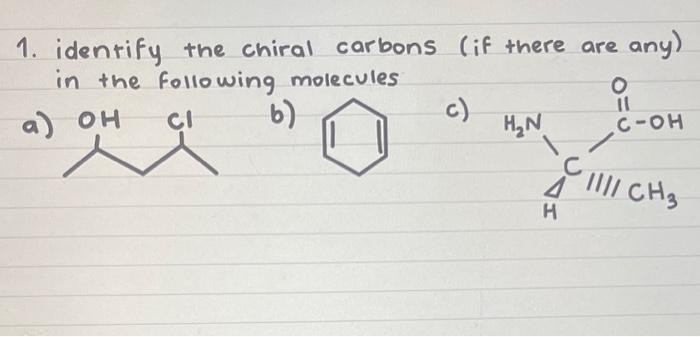 1. identify the chiral carbons (if there are any)
in the following molecules
a) OH Cl
b)
c) H₂N C O C-OH H CH₃